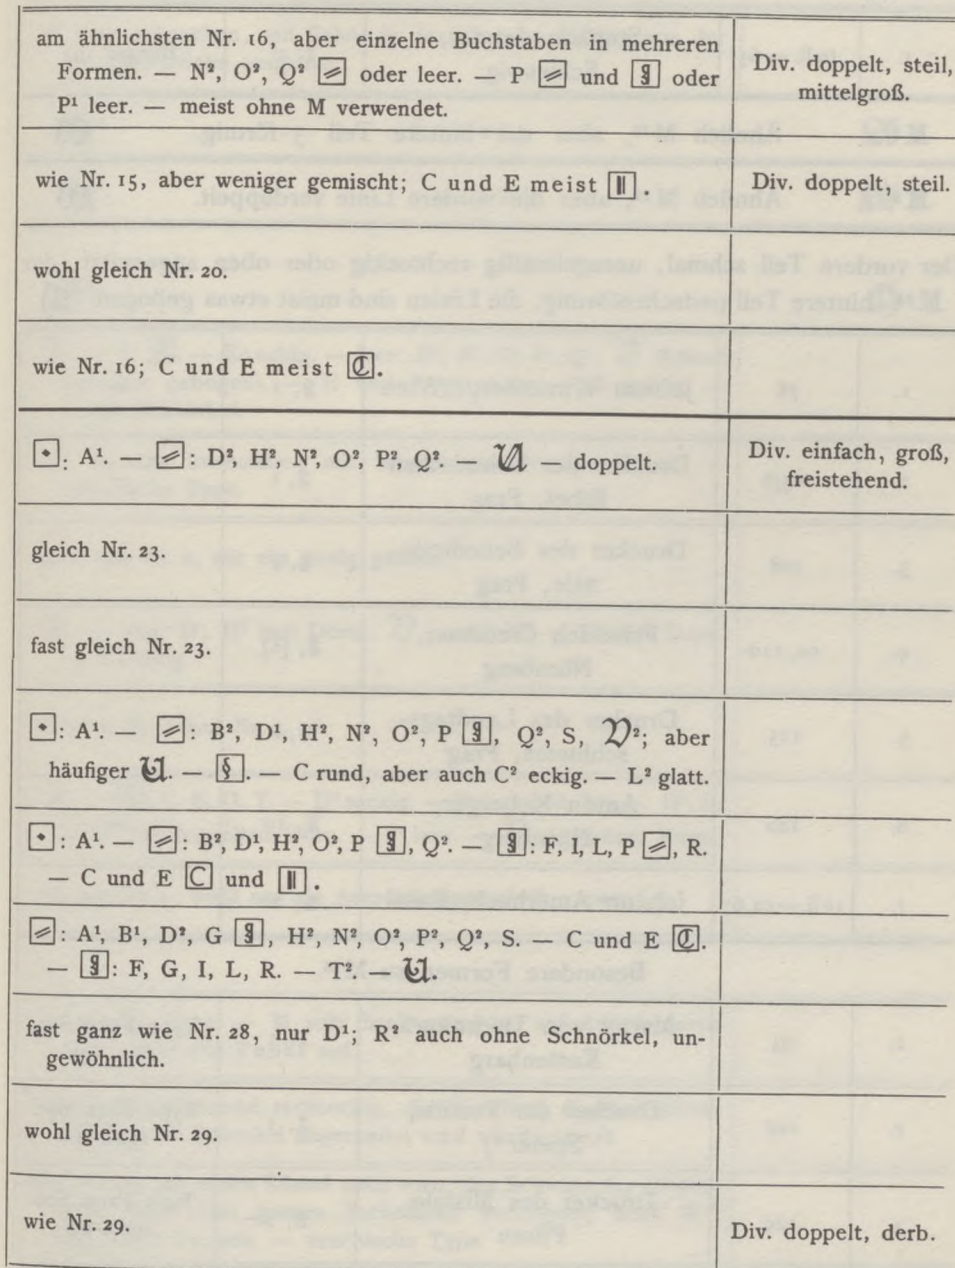 am ähnlichsten Nr. 16, aber einzelne Buchstaben in mehreren
Formen. — N², O², Q² [⫽] oder leer. — P [⫽] und [§] oder
P¹ leer. — meist ohne M verwendet.
Div. doppelt, steil,
mittelgroß.
wie Nr. 15, aber weniger gemischt; C und E meist [‖].
Div. doppelt, steil.
wohl gleich Nr. 20.
wie Nr. 16; C und E meist [ℭ].
[◆]: A¹. — [⫽]: D², H², N², O², P², Q². — 𝔘 — doppelt.
Div. einfach, groß,
freistehend.
gleich Nr. 23.
fast gleich Nr. 23.
[◆]: A¹. — [⫽]: B², D¹, H², N², O², P [§], Q², S, 𝔙²; aber
häufiger 𝔘. — [§]. — C rund, aber auch C² eckig. — L² glatt.
[◆]: A¹. — [⫽]: B², D¹, H², O², P [§], Q². — [§]: F, I, L, P [⫽], R.
— C und E [C] und [‖].
[⫽]: A¹, B¹, D², G [§], H², N², O², P², Q², S. — C und E [ℭ].
— [§]: F, G, I, L, R. — T². — 𝔘.
fast ganz wie Nr. 28, nur D¹; R² auch ohne Schnörkel, un-
gewöhnlich.
wohl gleich Nr. 29.
wie Nr. 29.
Div. doppelt, derb.